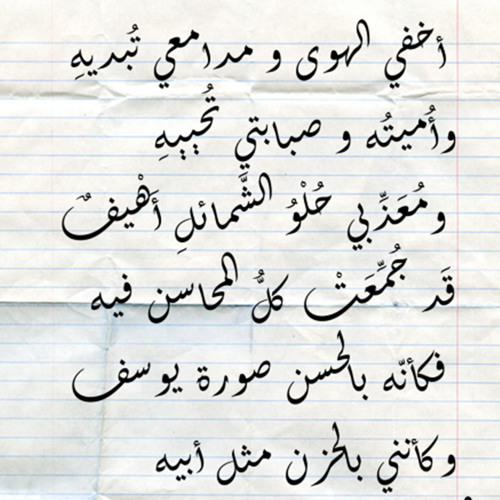 أخفي الهوى و مدامعي تُبديهِ
وأُميتُه و صبابتي تُحييهِ
ومُعَذِّبي حُلْوُ الشَّمائلِ أَهْيفٌ
قَد جُمِّعَتْ كلُّ المحاسن فيه
فكأنّه بالحسن صورة يوسف
وكأنني بالحزن مثل أبيه